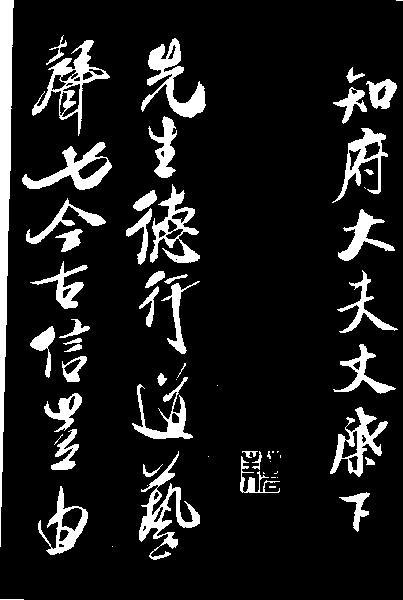 知府大夫丈棨下
先生德行道藝
聲七今古信豈由